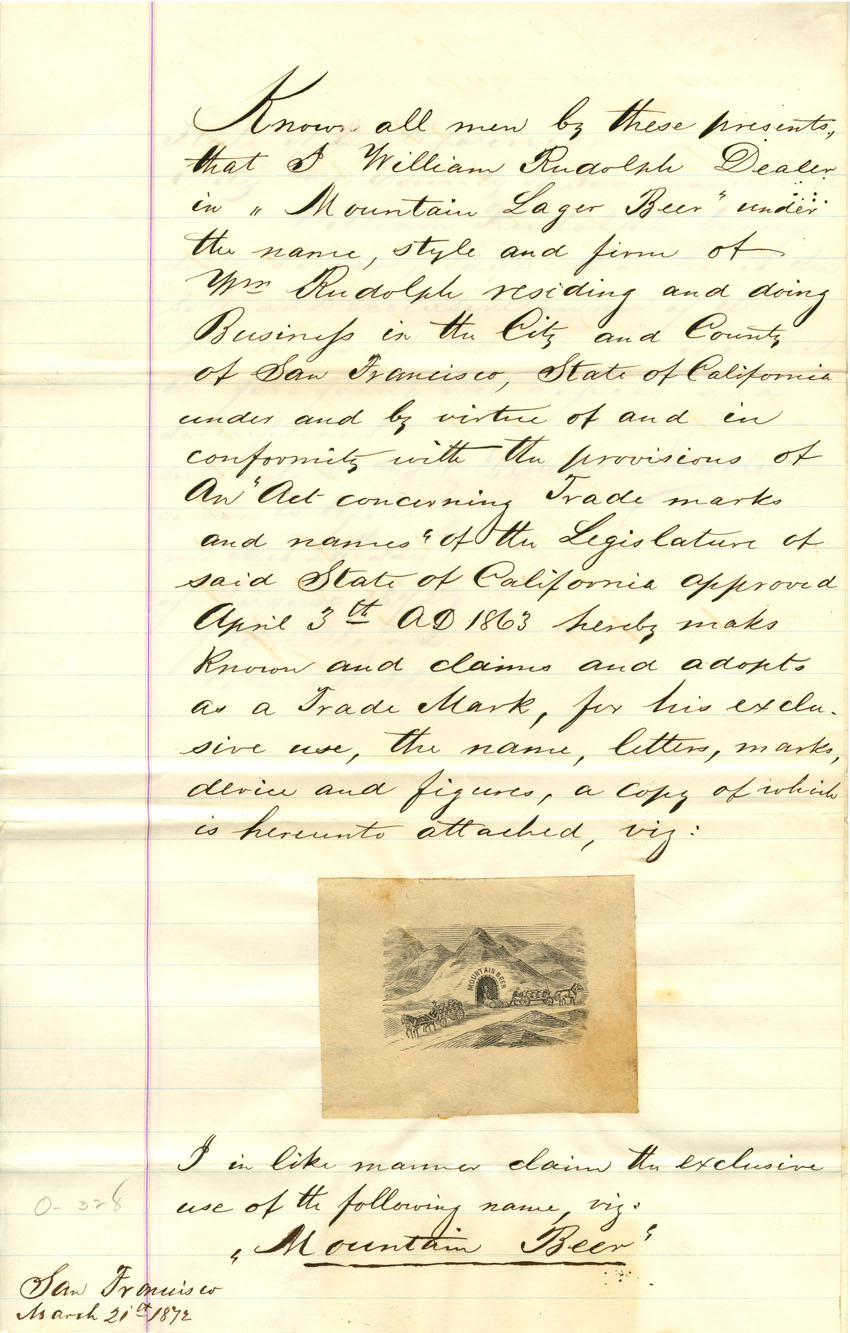 Know all men by these presents,
that I William Rudolph Dealer
in „ Mountain Lager Beer“ under
the name, style and firm of
Wm Rudolph residing and doing
Business in the City and County
of San Francisco, State of California
under and by virtue of and in
conformity with the provisions of
An "Act concerning Trade marks
and names“ of the Legislature of
said State of California approved
April 3th AD 1863 hereby maks
Known and claims and adopts
as a Trade Mark, for his exclu-
sive use, the name, letters, marks,
device and figures, a copy of which
is hereunto attached, viz:
MOUNTAIN BEER
I in like manner claim the exclusive
use of the following name, viz:
„ Mountain Beer“
0-328
San Francisco
March 21th 1872